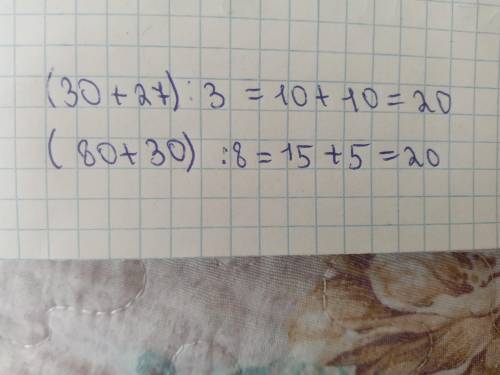 (30 + 27) : 3 = 10 + 10 = 20
(80 + 30) : 8 = 15 + 5 = 20